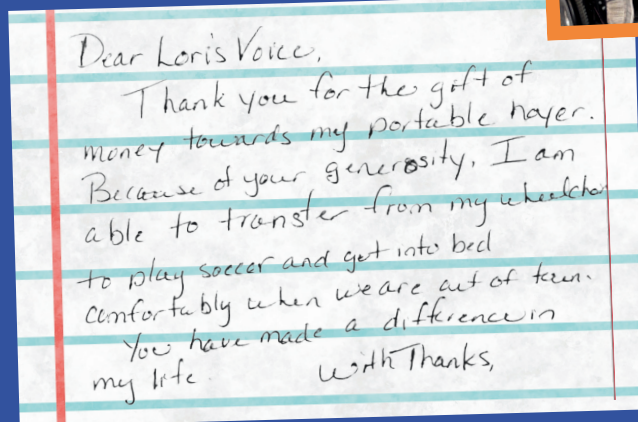 Dear Lori's Voice,
Thank you for the gift of
money towards my portable hoyer.
Because of your generosity, I am
able to transfer from my wheelchair
to play soccer and get into bed
comfortably when we are out of town.
You have made a difference in
my life.
With Thanks,